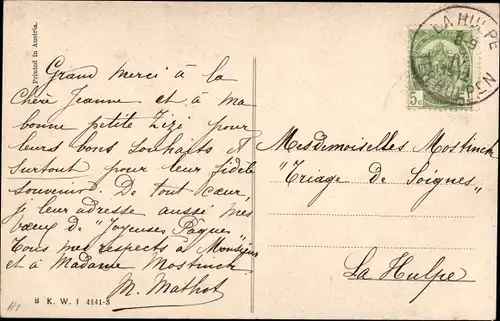 Printed in Austria.
Grand merci à la
Chère Jeanne et à ma
bonne petite Zizi pour
leurs bons souhaits et
surtout pour leur fidèle
souvenir. De tout cœur,
je leur adresse aussi mes
vœux de "Joyeuses Pâques"
Tous mes respects à Monsieur
et à Madame Mostinck.
M. Mathot
B.K.W.I 4141-3
LA HULPE
TERHULPEN
5c
Mesdemoiselles Mostinck
"Triage de Soignes"
La Hulpe